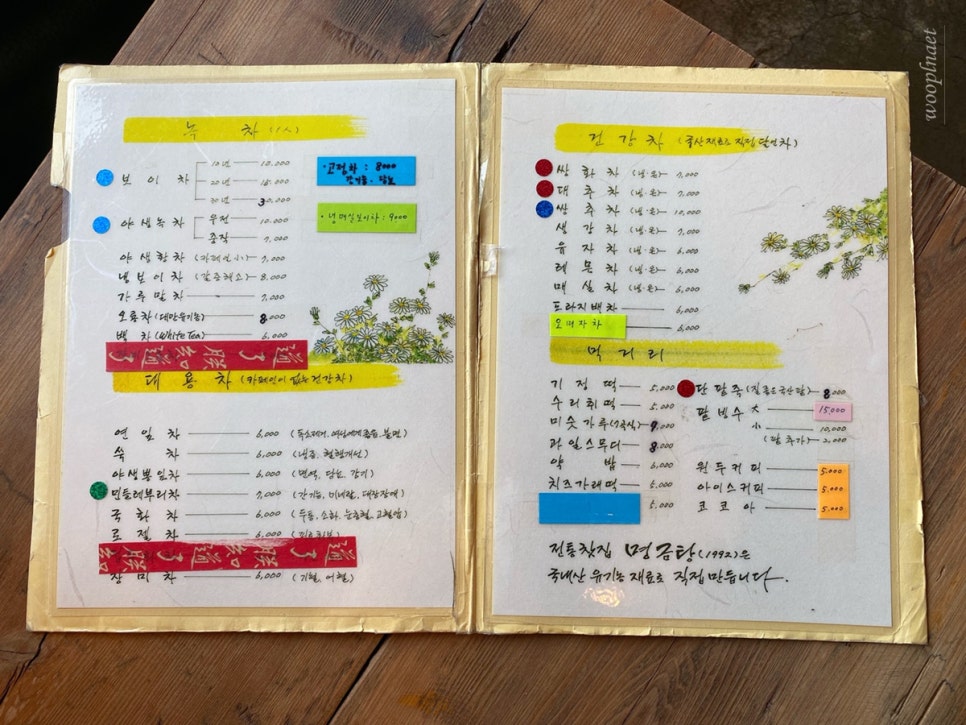 녹 차 (1人)
보 이 차 10년 12,000
20년 18,000
30년 30,000
야생녹차 우전 10,000
중작 7,000
야 생 황 차 (카페인小) 7,000
냉 보 이 차 (갈증해소) 8,000
가 루 말 차 7,000
오 룡 차 (대만유기농) 8,000
백 차 (White Tea) 6,000
·고정차 : 8000
·냉매실보이차 : 9000
대 용 차 (카페인이 없는 건강차)
연 잎 차 6,000
쑥 차 6,000 (냉증, 혈행개선)
야생뽕잎차 6,000 (면역, 당뇨, 감기)
민들레뿌리차 7,000 (간기능, 미네랄, 대장장애)
국 화 차 6,000
로 젤 차 6,000 (피로회복)
장 미 차 6,000
건 강 차 (국산재료로 직접 달인차)
쌍 화 차 (냉·온) 7,000
대 추 차 (냉·온) 7,000
쌍 추 차 (냉·온) 10,000
생 강 차 (냉·온) 7,000
유 자 차 (냉·온) 6,000
레 몬 차 (냉·온) 6,000
매 실 차 (냉·온) 6,000
도라지배차 6,000
오 미 자 차 6,000
먹 거 리
기 정 떡 5,000
수 리 취 떡 5,000
미 숫 가 루 (7곡식)
과일스무디 8,000
약 밥 6,000
치즈가래떡 5,000
5,000
단 팥 죽 8,000
팥 빙 수 大 15,000
小 10,000
(팥 추가) 2,000
원 두 커 피 5.000
아이스커피 5.000
코 코 아 5.000
전통찻집 명금당 (1992)은
국내산 유기농 재료로 직접 만듭니다.
wooplnaet